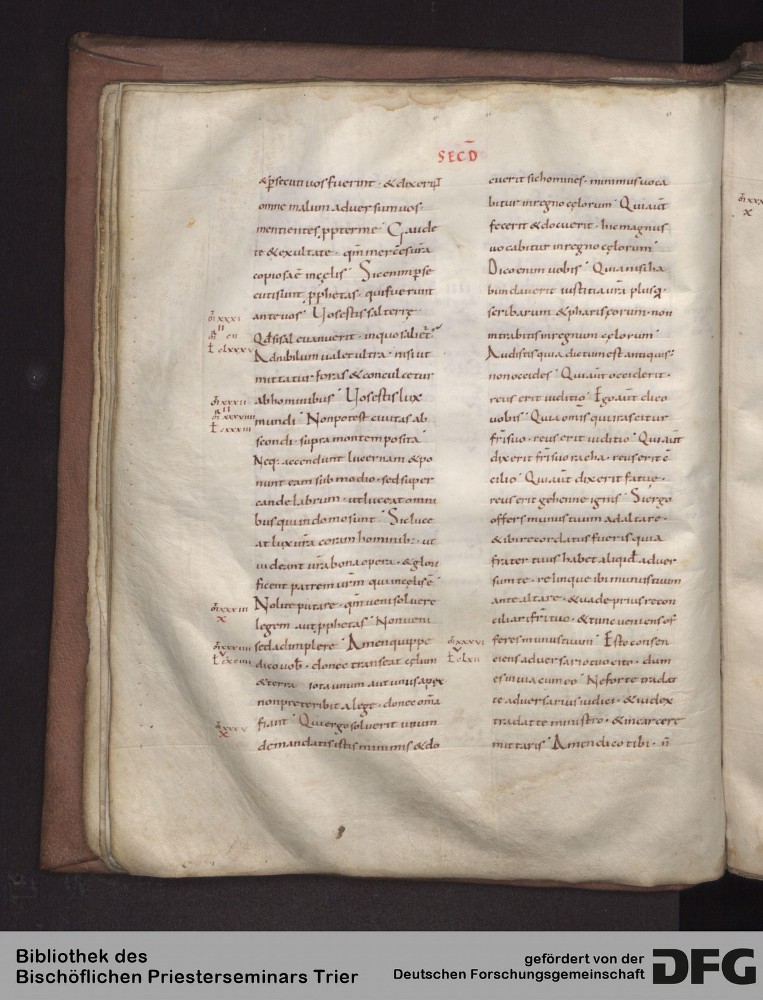 SECD
& psecuti uos fuerint · & dixerint
omne malum aduersum uos ·
mentientes ppter me Gaude
te & exultate · qm merces ura
copiosa e in celis Sic enim pse
cuti sunt pphetas · qui fuerunt
ante uos Uos estis sal terre
Qd si sal euanuerit · in quo saliet
Ad nihilum ualet ultra · nisi ut
mittatur foras & conculcetur
ab hominibus Uos estis lux
mundi Non potest ciuitas ab
scondi · supra montem posita
Neq· accendunt lucernam & po
nunt eam sub modio · sed super
candelabrum · ut luceat omni
bus qui in domo sunt Sic luce
at lux ura coram hominib: · ut
uideant ura bona opera · & glori
ficent patrem urm qui in celis e
Nolite putare · qm ueni soluere
legem aut pphetas Non ueni
sed adimplere Amen quippe
dico uob · donec transeat celum
& terra iota unum aut unus apex
non preteribit a lege · donec oma
fiant Qui ergo soluerit unum
de mandatis istis minimis & do
cuerit sic homines · minimus uoca
bitur in regno celorum Qui aut
fecerit & docuerit · hic magnus
uocabitur in regno celorum
Dico enim uobis Quia nisi ha
bundauerit iustitia ura plusq
scribarum & phariseorum · non
intrabitis in regnum celorum
Audistis quia dictum est antiquis
non occides Qui aut occiderit ·
reus erit iuditio Ego aut dico
uobis Quia omis qui irascitur
fri suo · reus erit iuditio Qui aut
dixerit fri suo racha · reus erit c
cilio Qui aut dixerit fatue ·
reus erit gehenne ignis Si ergo
offers munus tuum ad altare ·
& ibi recordatus fueris quia
frater tuus habet aliquid aduer
sum te · relinque ibi munus tuum
ante altare · & uade prius recon
ciliari fri tuo · & tunc ueniens of
feres munus tuum Esto consen
ciens aduersario tuo cito · dum
es in uia cum eo Ne forte tradat
te aduersarius iudici · & iudex
tradat te ministro · & in carcere
mittaris Amen dico tibi · n
Bibliothek des
Bischöflichen Priesterseminars Trier
gefördert von der
Deutschen Forschungsgemeinschaft
DFG